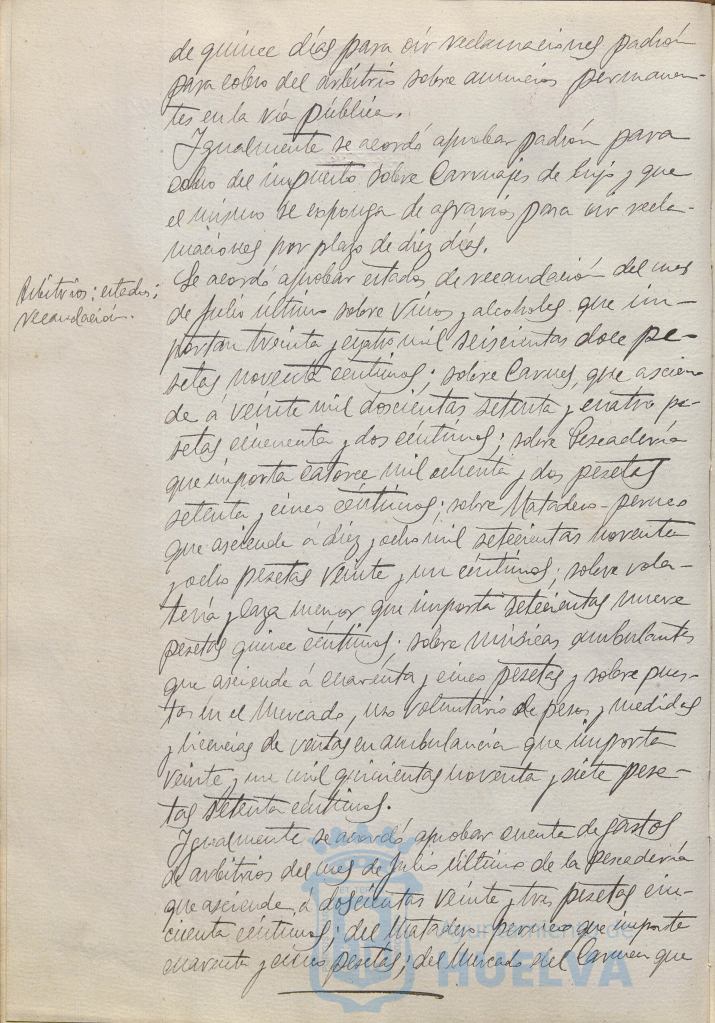 de quince días para oir reclamaciones padrón
para cobro del arbitrio sobre anuncios permanen-
tes en la via pública.
Igualmente se acordó aprobar padrón para
cobro del impuesto sobre Carruajes de lujo y que
el mismo se exponga de agravios para oir recla-
maciones por plazo de diez días.
Arbitrios; estados;
recaudación.
Se acordó aprobar estados de recaudación del mes
de Julio último sobre vinos y alcoholes que im-
portan treinta y cuatro mil seiscientas doce pe-
setas noventa céntimos; sobre Carnes, que ascien-
de á veinte mil doscientas setenta y cuatro pe-
setas cincuenta y dos céntimos; sobre Pescadería
que importa catorce mil ochenta y dos pesetas
setenta y cinco céntimos; sobre Matadero-porcuno
que asciende á diez y ocho mil setecientas noventa
y ocho pesetas veinte y un céntimos; sobre vola-
tería y caza menor que importa setecientas nueve
pesetas quince céntimos; sobre músicas ambulantes
que asciende á cuarenta y cinco pesetas y sobre pues-
tos en el Mercado, uso voluntario de pesos y medidas
y licencias de ventas en ambulancia que importa
veinte y un mil quinientas noventa y siete pese-
tas setenta céntimos.
Igualmente se acordó aprobar cuenta de gastos
de arbitrios del mes de Julio último de la pescadería
que asciende á doscientas veinte y tres pesetas cin-
cuenta céntimos; del Matadero que importa
cuarenta y cinco pesetas; del Mercado del Carmen que
Ayuntamiento de
HUELVA